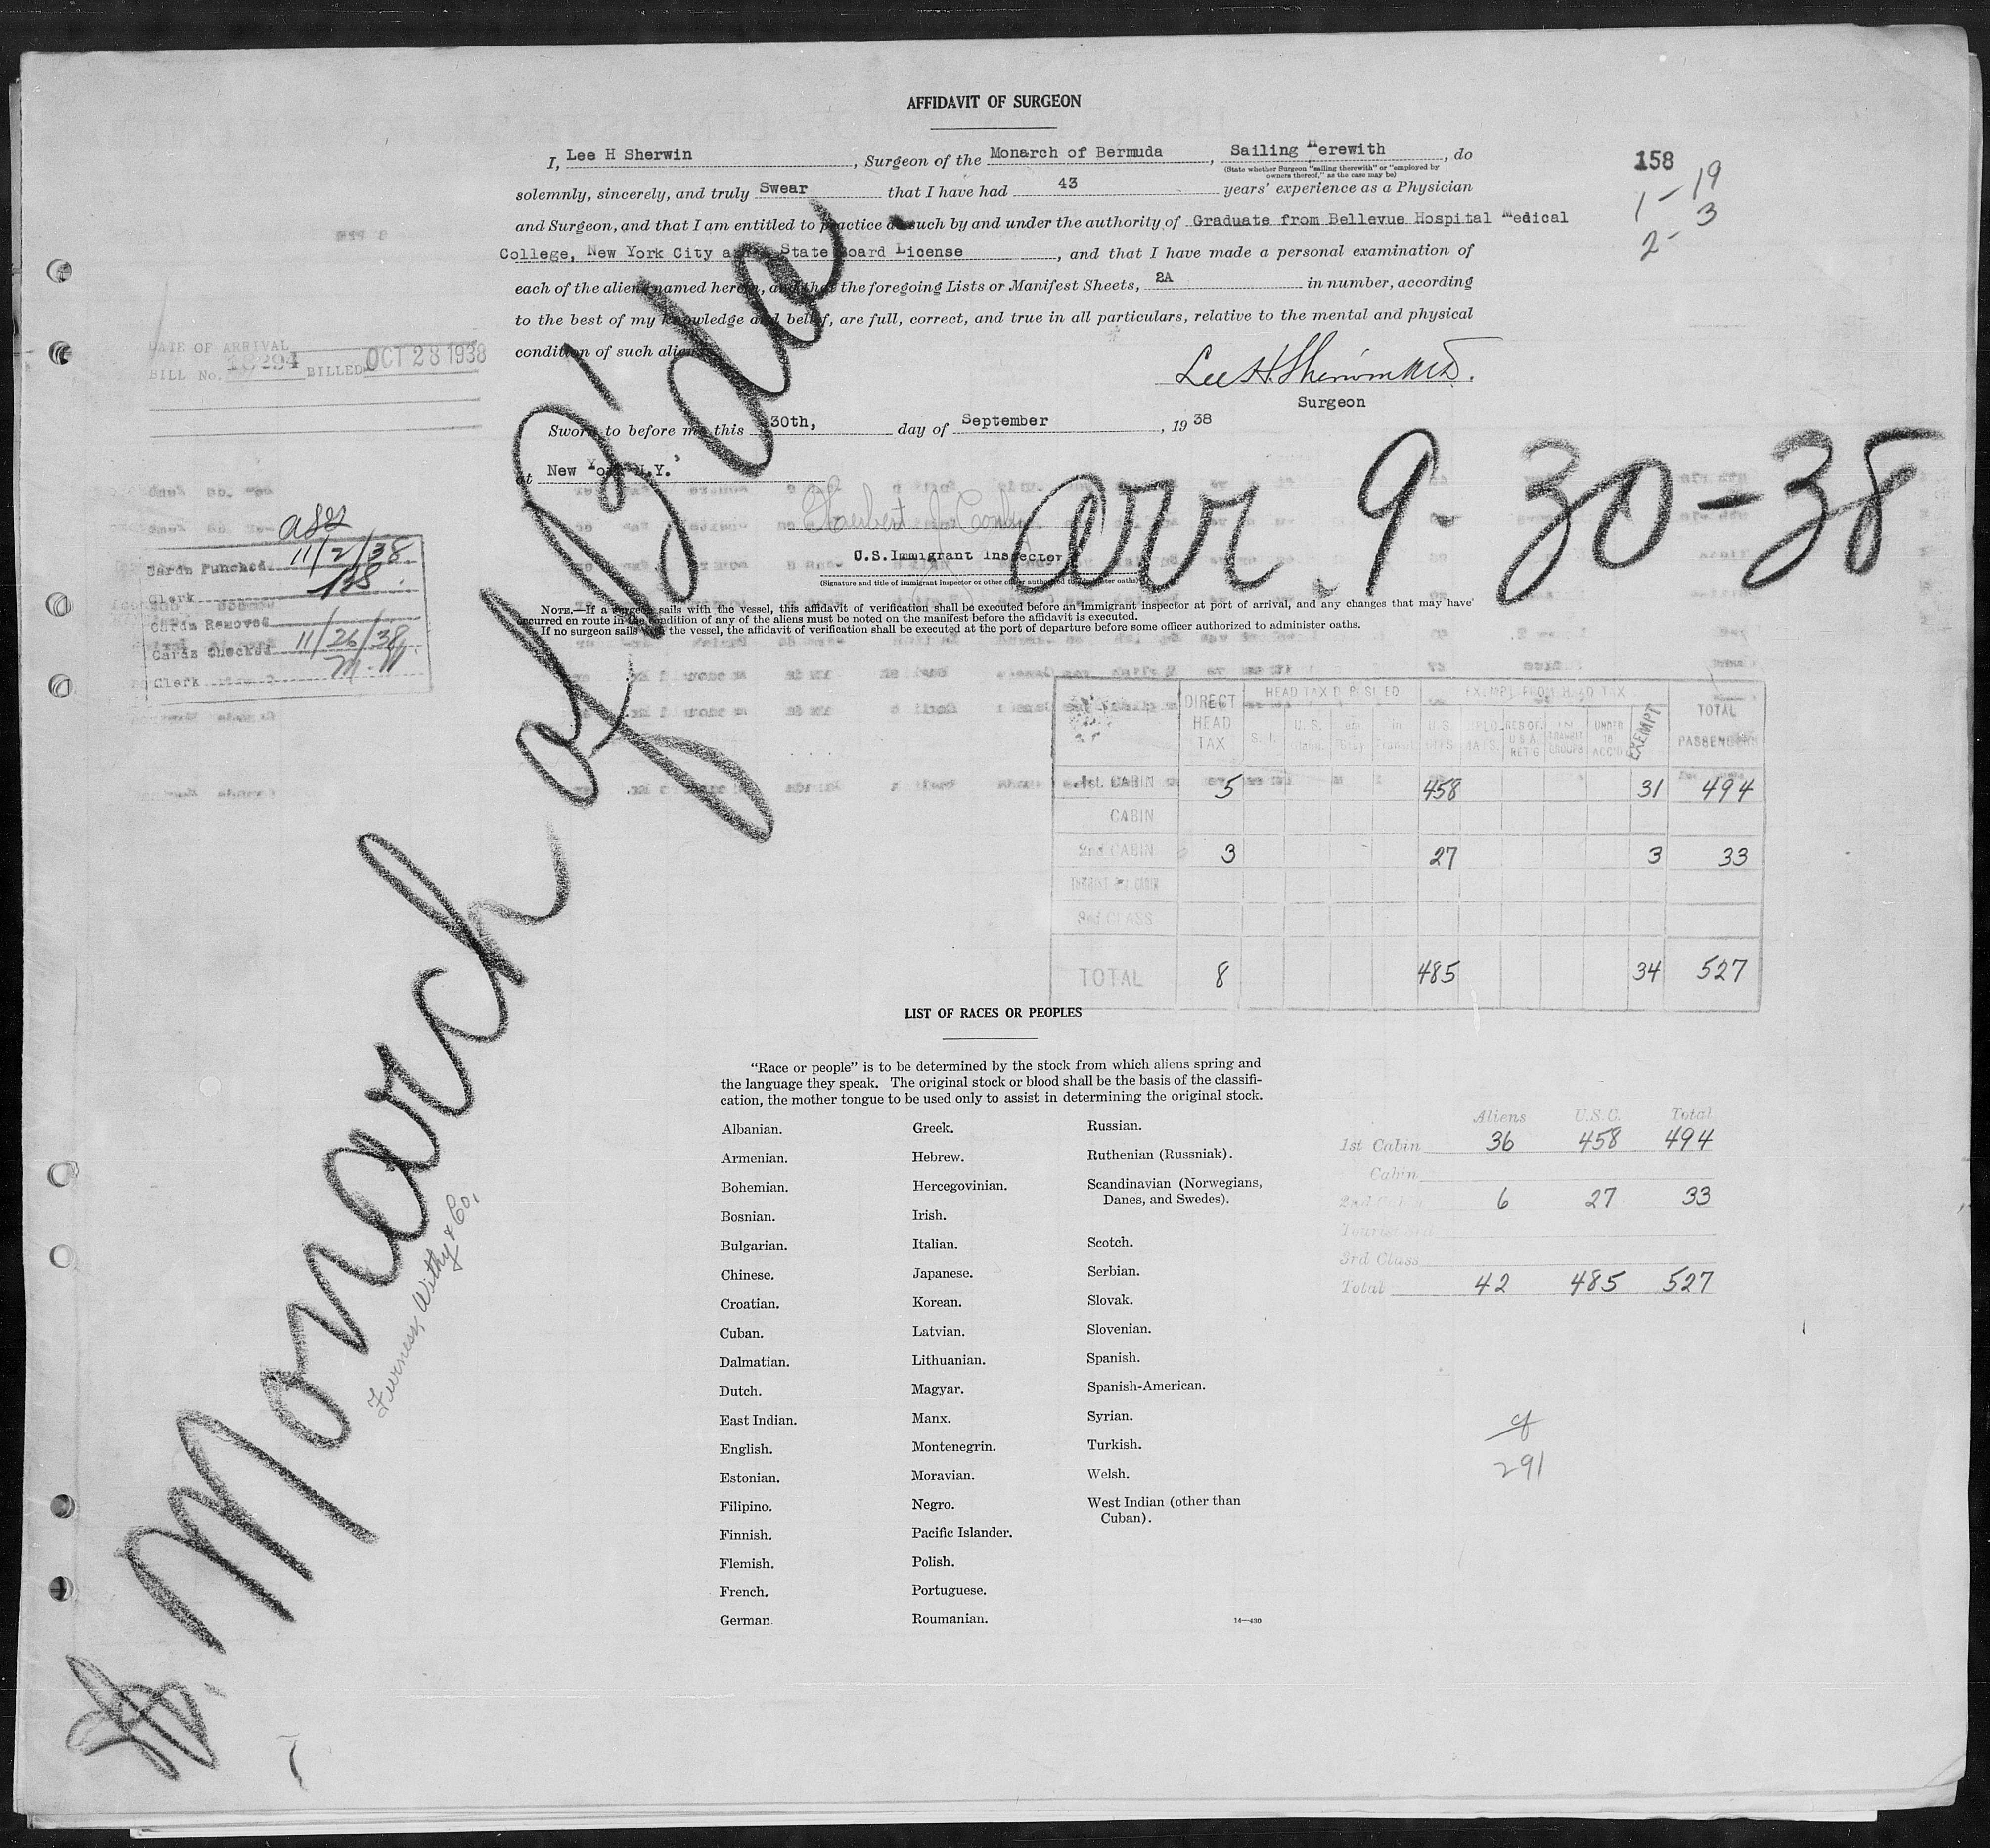 AFFIDAVIT OF SURGEON
I, Lee H Sherwin, Surgeon of the Monarch of Bermuda, Sailing Herewith, do
(State whether Surgeon "sailing therewith" or "employed by
owners thereof," as the case may be)
solemnly, sincerely, and truly Swear that I have had 43 years' experience as a Physician
and Surgeon, and that I am entitled to practice as such by and under the authority of Graduate from Bellevue Hospital Medical
College, New York City and State Board License, and that I have made a personal examination of
each of the aliens named herein, and that the foregoing Lists or Manifest Sheets, 2A in number, according
to the best of my knowledge and belief, are full, correct, and true in all particulars, relative to the mental and physical
condition of such aliens
Lee H. Sherwin M.D.
Surgeon
158
1 - 19
2 - 3
DATE OF ARRIVAL
BILL No. 18294 BILLED OCT 28 1938
Sworn to before me this 30th, day of September, 19 38
at New York N.Y.
U.S. Immigrant Inspector
(Signature and title of immigrant inspector or other officer authorized to administer oaths)
arr. 9-30-38
Cards Punched 11/2/38
Clerk 128
Cards Removed
Cards Checked 11/26/38
Clerk M.W.
NOTE.—If a surgeon sails with the vessel, this affidavit of verification shall be executed before an immigrant inspector at port of arrival, and any changes that may have
occurred en route in the condition of any of the aliens must be noted on the manifest before the affidavit is executed.
If no surgeon sails with the vessel, the affidavit of verification shall be executed at the port of departure before some officer authorized to administer oaths.
Monarch of B'da
Furness, Withy & Co.
DIRECT HEAD TAX EXEMPT FROM HEAD TAX EXEMPT TOTAL PASSENGERS
1st. CABIN 5 458 31 494
CABIN
2nd CABIN 3 27 3 33
3rd CLASS
TOTAL 8 485 34 527
LIST OF RACES OR PEOPLES
"Race or people" is to be determined by the stock from which aliens spring and
the language they speak. The original stock or blood shall be the basis of the classifi-
cation, the mother tongue to be used only to assist in determining the original stock.
Albanian.
Armenian.
Bohemian.
Bosnian.
Bulgarian.
Chinese.
Croatian.
Cuban.
Dalmatian.
Dutch.
East Indian.
English.
Estonian.
Filipino.
Finnish.
Flemish.
French.
German.
Greek.
Hebrew.
Hercegovinian.
Irish.
Italian.
Japanese.
Korean.
Latvian.
Lithuanian.
Magyar.
Manx.
Montenegrin.
Moravian.
Negro.
Pacific Islander.
Polish.
Portuguese.
Roumanian.
Russian.
Ruthenian (Russniak).
Scandinavian (Norwegians,
Danes, and Swedes).
Scotch.
Serbian.
Slovak.
Slovenian.
Spanish.
Spanish-American.
Syrian.
Turkish.
Welsh.
West Indian (other than
Cuban).
14—430
Aliens U.S.C. Total
1st Cabin 36 458 494
Cabin
2nd Cabin 6 27 33
3rd Class
Total 42 485 527
291